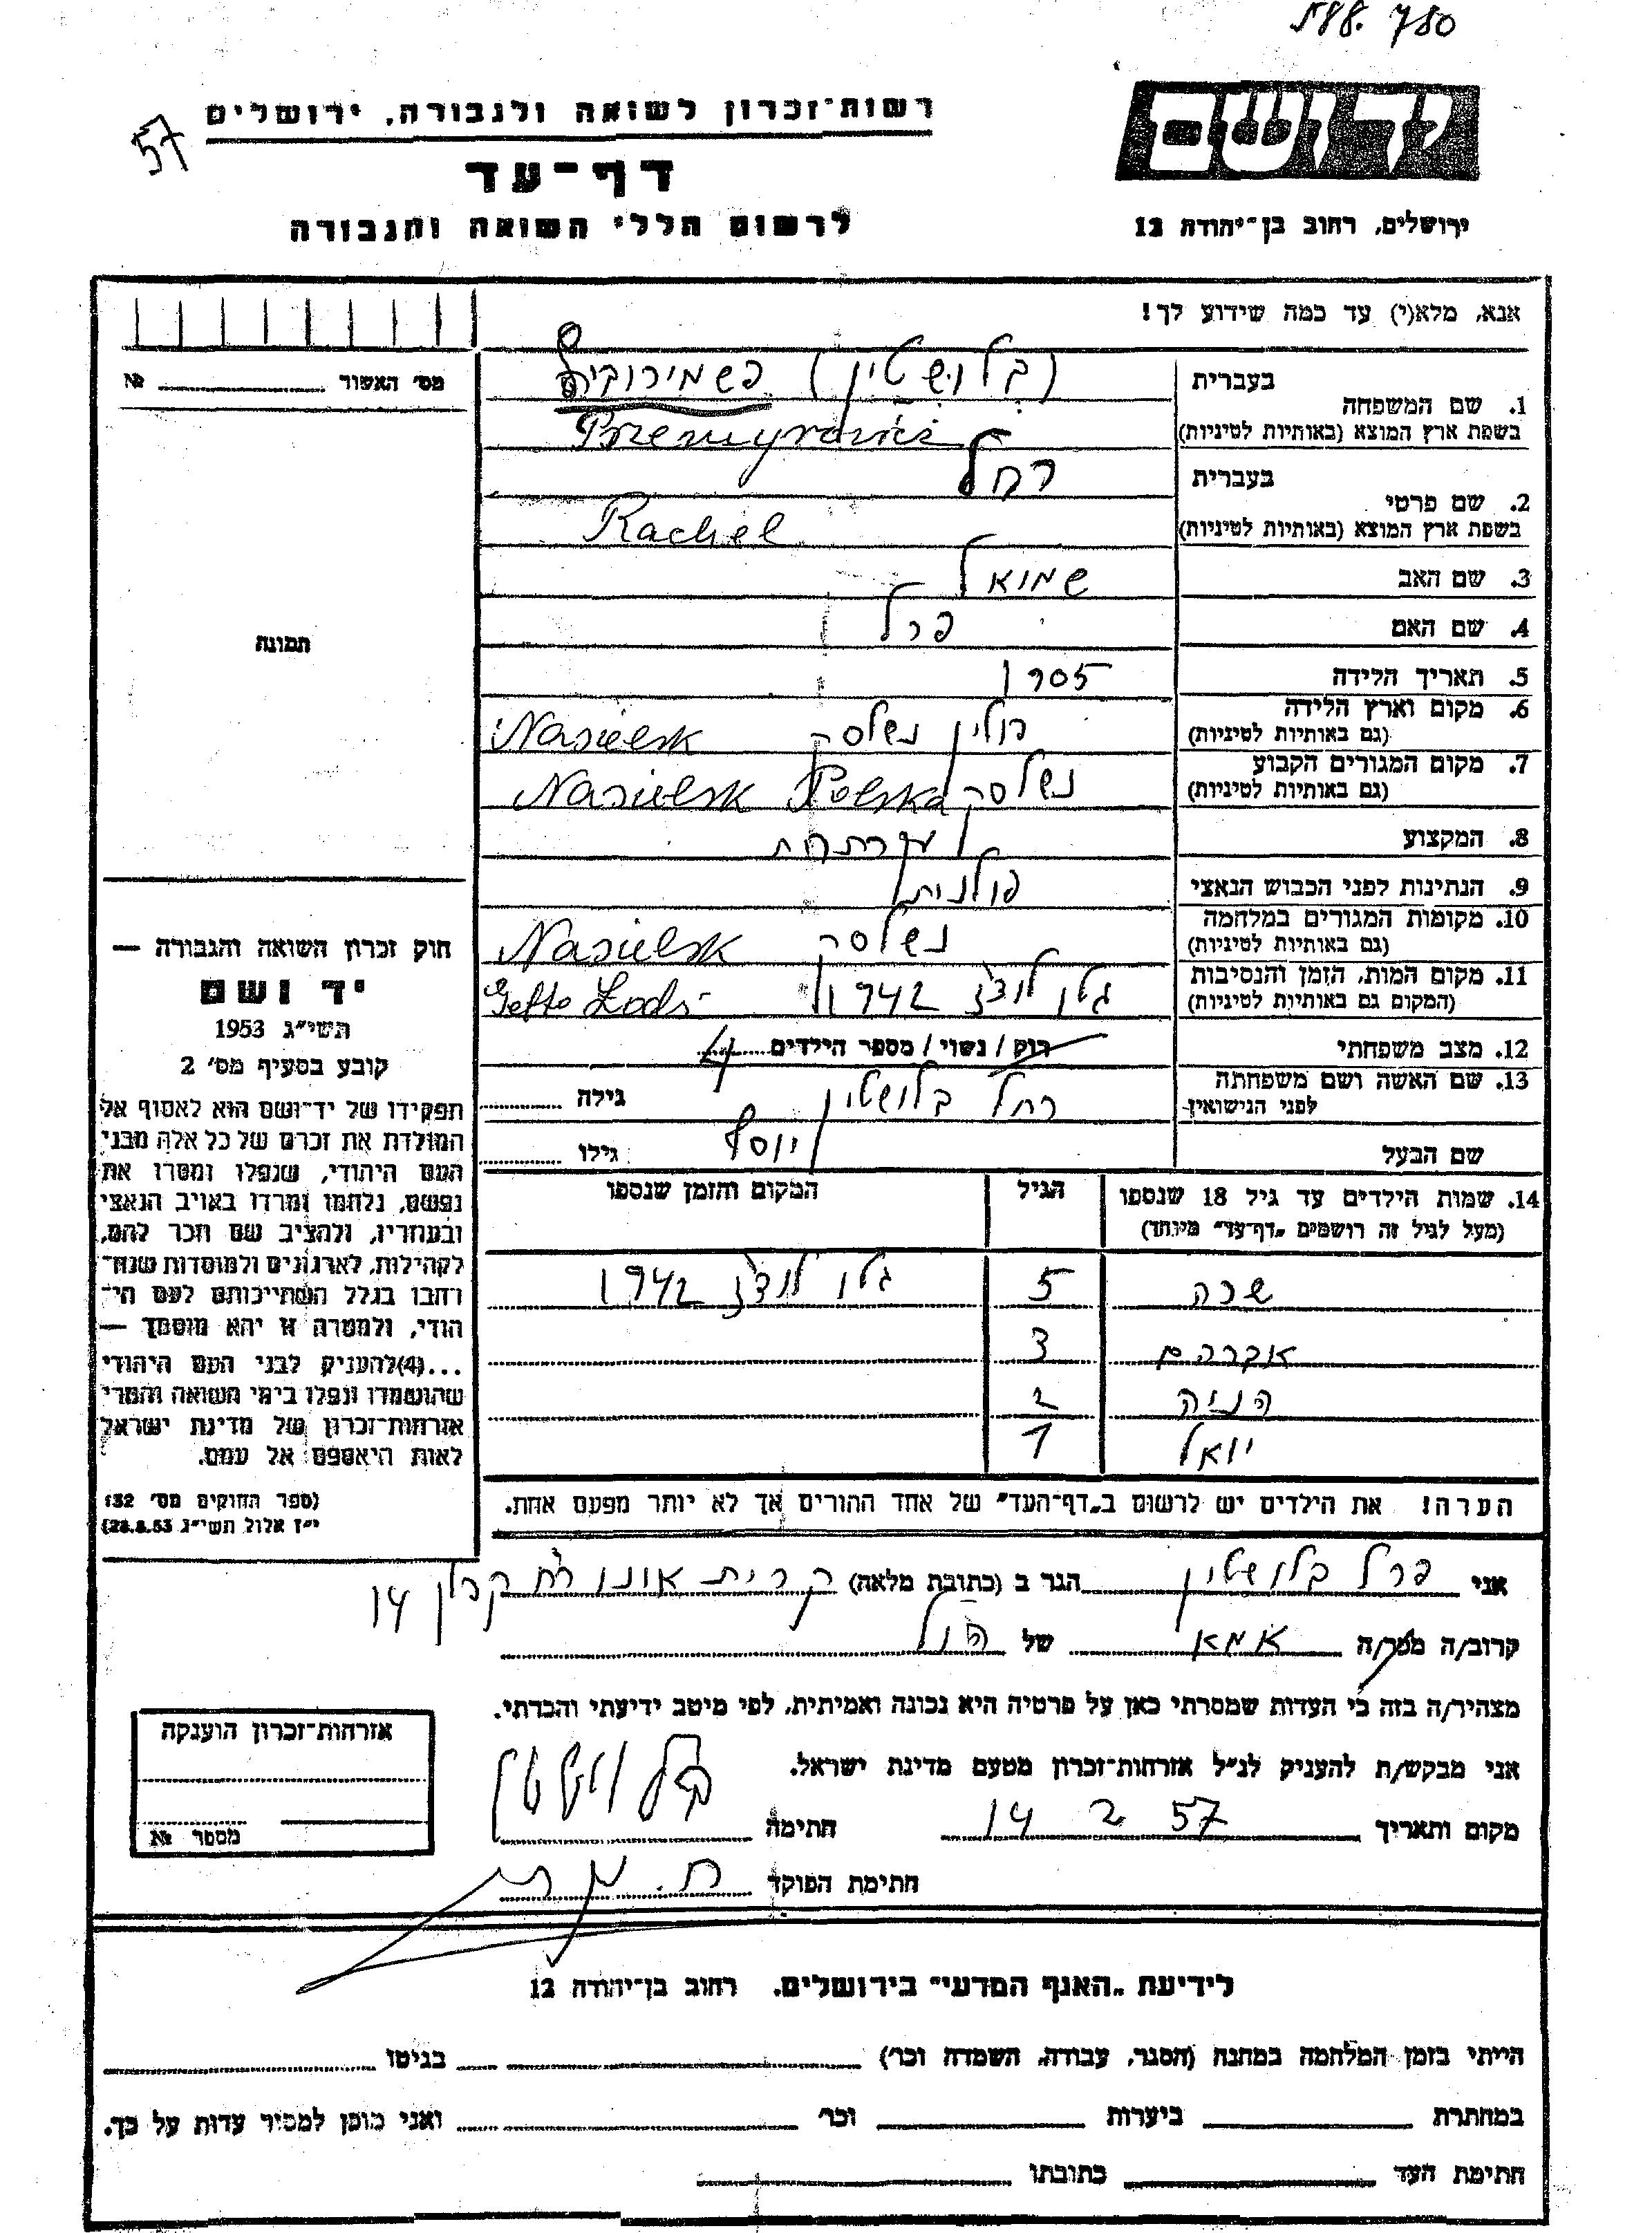 588. 780
57
רשות־זכרון לשואה ולגבורה, ירושלים
דף־עד
לרשום חללי השואה והגבורה
יד ושם
ירושלים, רחוב בן־יהודה 12
אנא, מלא(י) עד כמה שידוע לך!
מס׳ האשור № 
1. שם המשפחה בעברית (בלושטין)
בשפת ארץ המוצא (באותיות לטיניות)
2. שם פרטי בעברית רחל
בשפת ארץ המוצא (באותיות לטיניות) Rachel
3. שם האב שמואל
4. שם האם פרל
5. תאריך הלידה 1905
6. מקום וארץ הלידה (גם באותיות לטיניות) פולין נשלסק Nasielsk
7. מקום המגורים הקבוע (גם באותיות לטיניות) נשלסק Nasielsk Polska
8. המקצוע
9. הנתינות לפני הכבוש הנאצי פולנית
10. מקומות המגורים במלחמה (גם באותיות לטיניות) נשלסק Nasielsk
11. מקום המות, הזמן והנסיבות (המקום גם באותיות לטיניות) גטו לודז 1942 Getto Lodz
12. מצב משפחתי רוק / נשוי / מספר הילדים 4
13. שם האשה ושם משפחתה לפני הנישואין רחל בלושטין גילה
שם הבעל יוסף גילו
14. שמות הילדים עד גיל 18 שנספו הגיל המקום והזמן שנספו
(מעל לגיל זה רושמים „דף־עד״ מיוחד)
שרה 5 גטו לודז 1942
אברהם 3
הניה 2
יואל 1
הערה! את הילדים יש לרשום ב„דף־העד״ של אחד ההורים אך לא יותר מפעם אחת.
תמונה
חוק זכרון השואה והגבורה —
יד ושם
תשי״ג 1953
קובע בסעיף מס׳ 2
תפקידו של יד־ושם הוא לאסוף אל
המולדת את זכרם של כל אלה מבני
העם היהודי, שנפלו ומסרו את
נפשם, נלחמו ומרדו באויב הנאצי
ובעוזריו, ולהציב שם וזכר להם,
לקהילות, לארגונים ולמוסדות שנח־
רבו בגלל השתייכותם לעם הי־
הודי, ולמטרה זו יהא מוסמך —
...(4)להעניק לבני העם היהודי
שהושמדו ונפלו בימי השואה והמרי
אזרחות־זכרון של מדינת ישראל
לאות היאספם אל עמם.
(ספר החוקים מס׳ 132
י״ז אלול תשי״ג 28.8.53)
אני פרל בלושטין הגר ב (כתובת מלאה) קרית אונו רח קפלן 14
קרוב/ה מכר/ה אמא של הנ״ל
מצהיר/ה בזה כי העדות שמסרתי כאן על פרטיה היא נכונה ואמיתית, לפי מיטב ידיעתי והכרתי.
אני מבקש/ת להעניק לנ״ל אזרחות־זכרון מטעם מדינת ישראל.
מקום ותאריך 14 2 57 חתימה
חתימת הפוקד
אזרחות־זכרון הוענקה
מספר №
לידיעת „האגף המדעי״ בירושלים. רחוב בן־יהודה 12
הייתי בזמן המלחמה במחנה (הסגר, עבודה, השמדה וכר׳) בגיטו
במחתרת ביערות וכר׳ ואני מוכן למסיר עדות על כך.
חתימת העד כתובתו